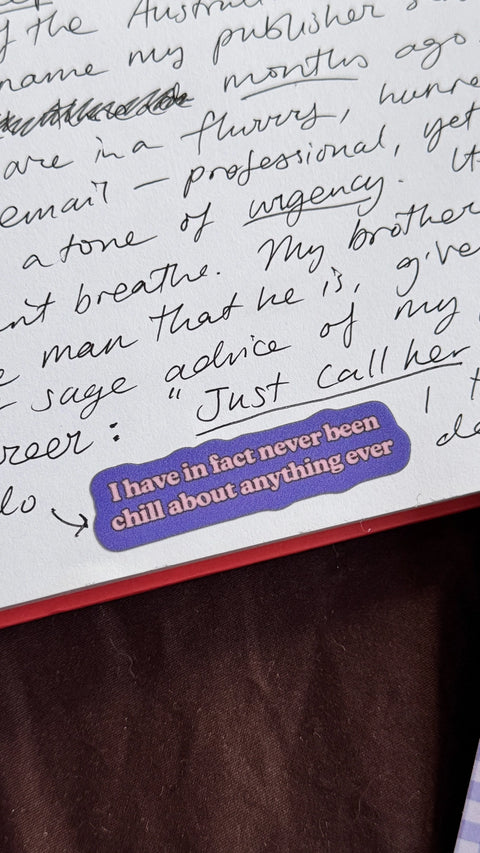 the Austral
name my publisher
months ago.
are in a flurry,
email — professional, yet
a tone of urgency.
breathe. My brother
man that he is, give
sage advice of my
: "Just call her
I
do
I have in fact never been
chill about anything ever